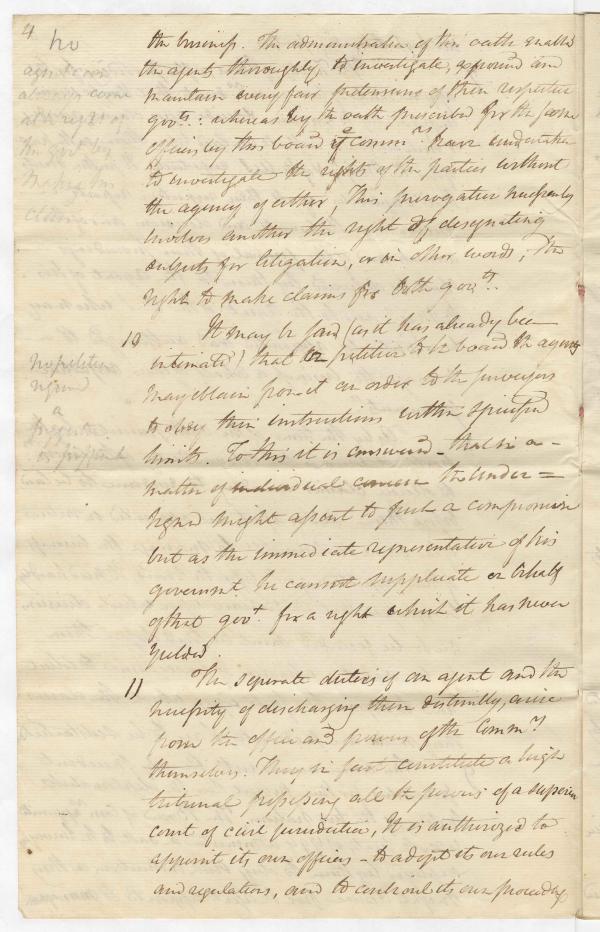 4
no
the business. The administration of this oath enables
the agents thoroughly to investigate, expound and
maintain every fair pretension of their respective
govts: whereas by the oath prescribed for the
officers by this board of commrs have undertaken
to investigate the rights of the parties without
the agency of either, This prerogative necessarily
involves another the right of designating
subjects for litigation, or in other words, the
right to make claims for both govts.
10 It may be said (as it has already been
intimated) that by petition to the board the agents
may obtain from it an order to the surveyors
to obey their instructions within specified
limits. To this it is answered - that in a
matter of individual concern the under=
signed might assent to such a compromise
but as the immediate representative of his
government he cannot supplicate on behalf
of that govt. for a right which it has never
yielded.
11 The separate duties of an agent and the
necessity of discharging them distinctly, arise
from the office and powers of the Commrs
themselves. They in fact constitute a high
tribunal possessing all the powers of a superior
court of civil jurisdiction, It is authorized to
appoint its own officers - to adopt its own rules
and regulations, and to controul its own proceedings
no petition